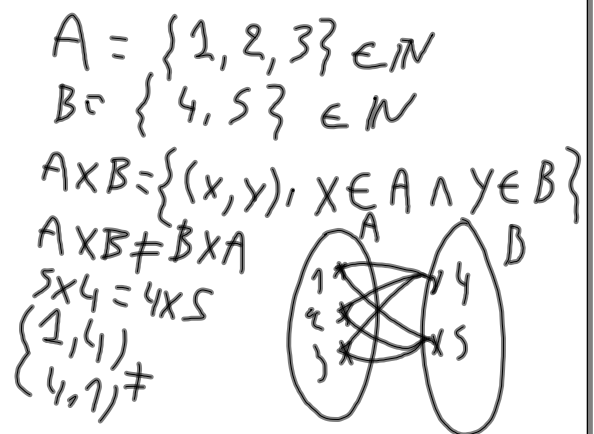 A = {1, 2, 3} ∈ ℕ
B = {4, 5} ∈ ℕ
A×B={(x,y). x∈A ∧ y∈B}
A×B≠B×A
5×4=4×5
{1,4)
4,1)≠
A
B
1
2
3
4
5